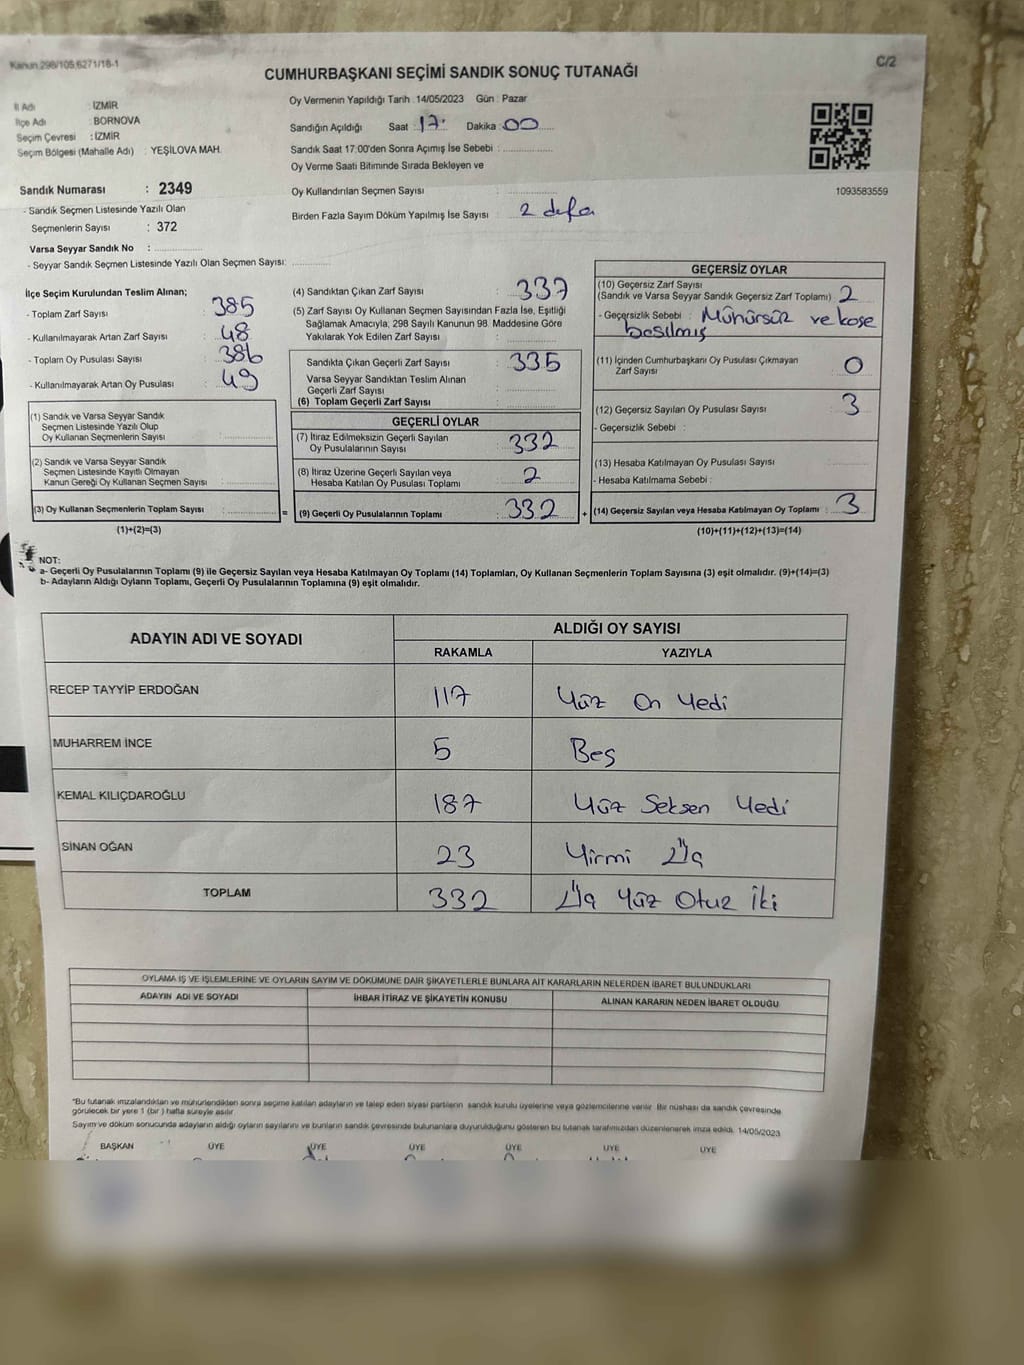 Kanun 298/105,6271/18-1
C/2
CUMHURBAŞKANI SEÇİMİ SANDIK SONUÇ TUTANAĞI
İl Adı : İZMİR
İlçe Adı : BORNOVA
Seçim Çevresi : İZMİR
Seçim Bölgesi (Mahalle Adı) : YEŞİLOVA MAH.
Oy Vermenin Yapıldığı Tarih : 14/05/2023 Gün : Pazar
Sandığın Açıldığı Saat : 17 Dakika : 00
Sandık Saat 17:00'den Sonra Açımış İse Sebebi :
Oy Verme Saati Bitiminde Sırada Bekleyen ve
Oy Kullandırılan Seçmen Sayısı :
Birden Fazla Sayım Döküm Yapılmış İse Sayısı : 2 defa
1093583559
Sandık Numarası : 2349
- Sandık Seçmen Listesinde Yazılı Olan
Seçmenlerin Sayısı : 372
Varsa Seyyar Sandık No :
- Seyyar Sandık Seçmen Listesinde Yazılı Olan Seçmen Sayısı:
İlçe Seçim Kurulundan Teslim Alınan;
- Toplam Zarf Sayısı : 385
- Kullanılmayarak Artan Zarf Sayısı : 48
- Toplam Oy Pusulası Sayısı : 386
- Kullanılmayarak Artan Oy Pusulası : 49
(1) Sandık ve Varsa Seyyar Sandık
Seçmen Listesinde Yazılı Olup
Oy Kullanan Seçmenlerin Sayısı :
(2) Sandık ve Varsa Seyyar Sandık
Seçmen Listesinde Kayıtlı Olmayan
Kanun Gereği Oy Kullanan Seçmen Sayısı :
(3) Oy Kullanan Seçmenlerin Toplam Sayısı : =
(1)+(2)=(3)
(4) Sandıktan Çıkan Zarf Sayısı : 337
(5) Zarf Sayısı Oy Kullanan Seçmen Sayısından Fazla İse, Eşitliği
Sağlamak Amacıyla; 298 Sayılı Kanunun 98. Maddesine Göre
Yakılarak Yok Edilen Zarf Sayısı :
Sandıkta Çıkan Geçerli Zarf Sayısı : 335
Varsa Seyyar Sandıktan Teslim Alınan
Geçerli Zarf Sayısı :
(6) Toplam Geçerli Zarf Sayısı :
GEÇERLİ OYLAR
(7) İtiraz Edilmeksizin Geçerli Sayılan
Oy Pusulalarının Sayısı : 332
(8) İtiraz Üzerine Geçerli Sayılan veya
Hesaba Katılan Oy Pusulası Toplamı : 2
(9) Geçerli Oy Pusulalarının Toplamı : 332 +
GEÇERSİZ OYLAR
(10) Geçersiz Zarf Sayısı
(Sandık ve Varsa Seyyar Sandık Geçersiz Zarf Toplamı) : 2
- Geçersizlik Sebebi : Mühürsüz ve kaşe
basılmış
(11) İçinden Cumhurbaşkanı Oy Pusulası Çıkmayan
Zarf Sayısı : 0
(12) Geçersiz Sayılan Oy Pusulası Sayısı : 3
- Geçersizlik Sebebi :
(13) Hesaba Katılmayan Oy Pusulası Sayısı :
- Hesaba Katılmama Sebebi :
(14) Geçersiz Sayılan veya Hesaba Katılmayan Oy Toplamı : 3
(10)+(11)+(12)+(13)=(14)
NOT:
a- Geçerli Oy Pusulalarının Toplamı (9) ile Geçersiz Sayılan veya Hesaba Katılmayan Oy Toplamı (14) Toplamları, Oy Kullanan Seçmenlerin Toplam Sayısına (3) eşit olmalıdır. (9)+(14)=(3)
b- Adayların Aldığı Oyların Toplamı, Geçerli Oy Pusulalarının Toplamına (9) eşit olmalıdır.
ADAYIN ADI VE SOYADI
ALDIĞI OY SAYISI
RAKAMLA YAZIYLA
RECEP TAYYİP ERDOĞAN 117 Yüz On Yedi
MUHARREM İNCE 5 Beş
KEMAL KILIÇDAROĞLU 187 Yüz Seksen Yedi
SİNAN OĞAN 23 Yirmi Üç
TOPLAM 332 Üç Yüz Otuz İki
OYLAMA İŞ VE İŞLEMLERİNE VE OYLARIN SAYIM VE DÖKÜMÜNE DAİR ŞİKAYETLERLE BUNLARA AİT KARARLARIN NELERDEN İBARET BULUNDUKLARI
ADAYIN ADI VE SOYADI İHBAR İTİRAZ VE ŞİKAYETİN KONUSU ALINAN KARARIN NEDEN İBARET OLDUĞU
"Bu tutanak imzalandıktan ve mühürlendikten sonra seçime katılan adayların ve talep eden siyasi partilerin sandık kurulu üyelerine veya gözlemcilerine verilir. Bir nüshası da sandık çevresinde
görülecek bir yere 1 (bir ) hafta süreyle asılır.
Sayım ve döküm sonucunda adayların aldığı oyların sayılarını ve bunların sandık çevresinde bulunanlara duyurulduğunu gösteren bu tutanak tarafımızdan düzenlenerek imza edildi. 14/05/2023
BAŞKAN ÜYE ÜYE ÜYE ÜYE ÜYE ÜYE